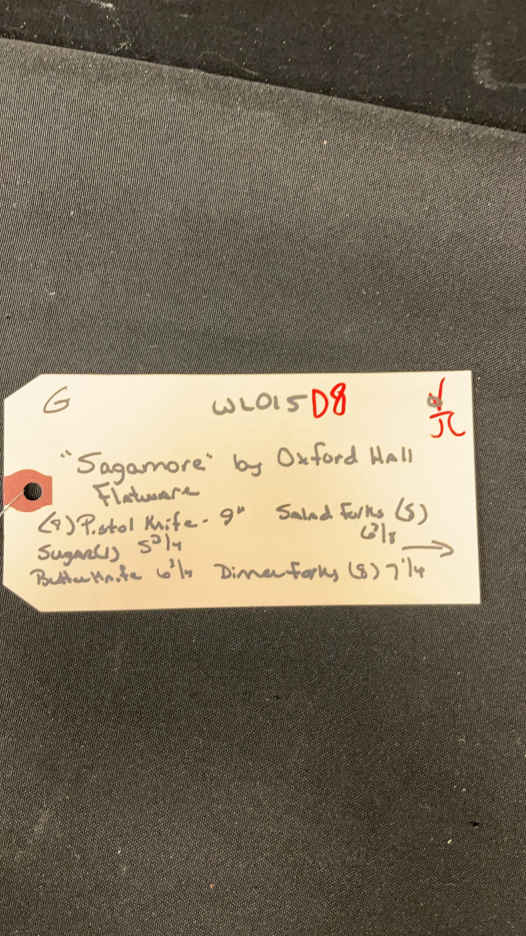 G WL015 D8
"Sagamore" by Oxford Hall
Flatware
(9) Pistol Knife - 9" Salad Forks (5)
Sugar(1) 5 3/4 6 7/8 →
Butter Knife 6 3/4 Dinner forks (8) 7 1/4